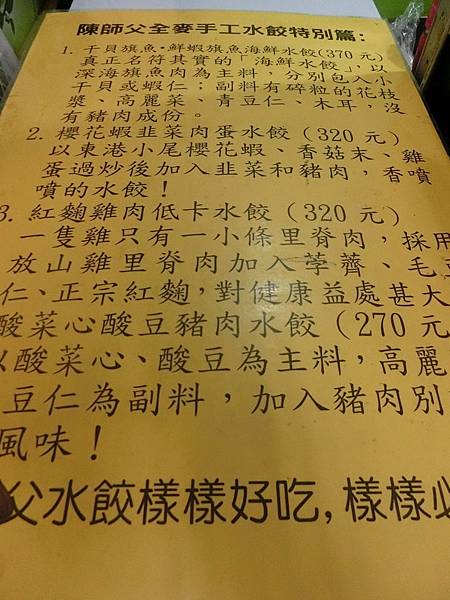 陳師父全麥手工水餃特別篇:
1. 干貝旗魚·鮮蝦旗魚海鮮水餃(370 元)
真正名符其實的「海鮮水餃」,以
深海旗魚肉為主料,分別包入小
干貝或蝦仁;副料有碎粒的花枝
漿、高麗菜、青豆仁、木耳,沒
有豬肉成份。
2. 櫻花蝦韭菜肉蛋水餃(320 元)
以東港小尾櫻花蝦、香菇末、雞
蛋過炒後加入韭菜和豬肉,香噴
噴的水餃!
3. 紅麴雞肉低卡水餃(320 元)
一隻雞只有一小條里脊肉,採用
放山雞里脊肉加入荸薺、毛豆
仁、正宗紅麴,對健康益處甚大
酸菜心酸豆豬肉水餃(270 元
以酸菜心、酸豆為主料,高麗
豆仁為副料,加入豬肉別
風味!
父水餃樣樣好吃,樣樣必